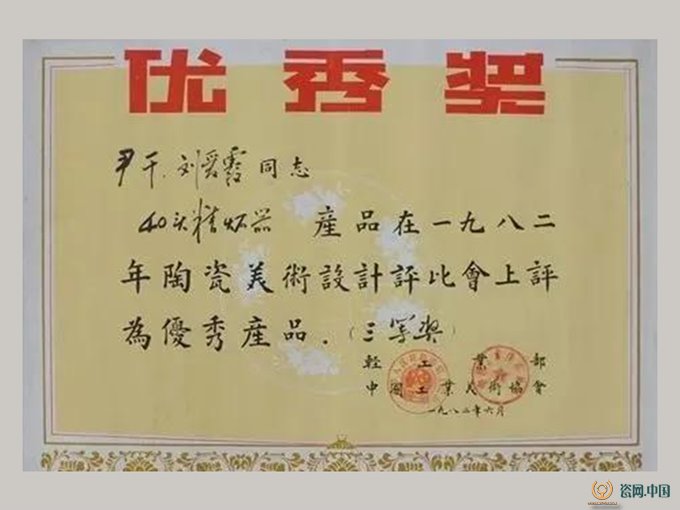 优秀奖
尹干、刘爱霞同志
40头精炻器 產品在一九八二
年陶瓷美術設計評比會上評
為優秀產品.（三等奖）
輕工業部
中國工業美術協會
一九八二年六月
瓷网.中国